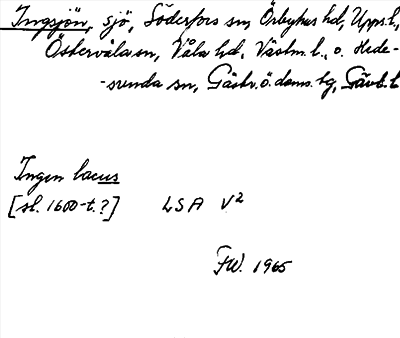 Ingsjön, sjö, Söderfors sn, Örbyhus hd, Upps. l.,
Östervåla sn, Våla hd, Västm. l., o. Hede-
-sunda sn, Gästr. ö. doms. tg, Gävb. l
Ingen lacus
[sl. 1600-t.?] LSA V²
FW. 1965